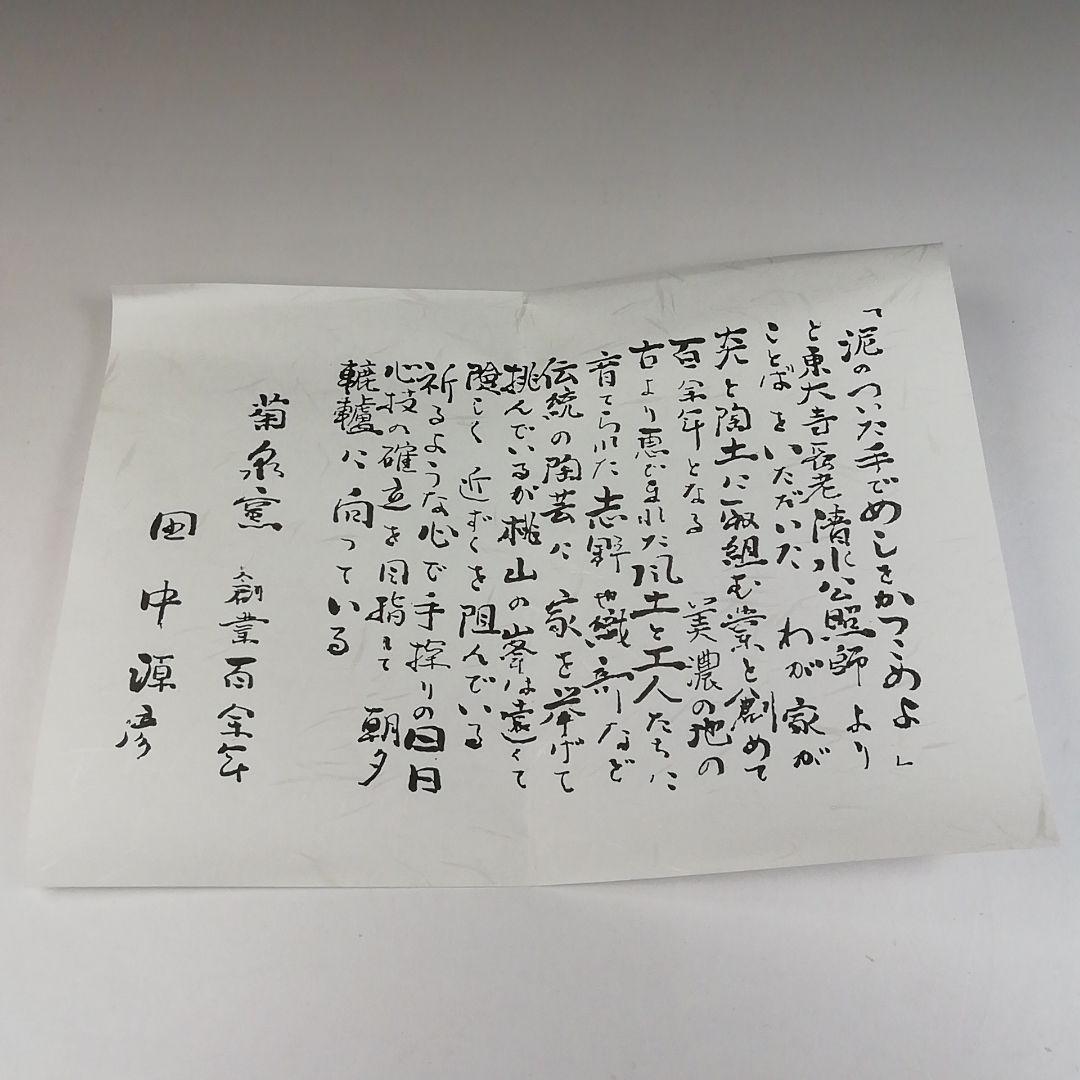 「泥のついた手でめしをかつこめよ」
と東大寺長老清水公照師より
ことばをいただいた わが家が
炎と陶土に取組む業を創めて
百余年となる 美濃の地の
古より恵まれた風土と工人たちに
育てられた志野や織部など
伝統の陶芸に 家を挙げて
挑んでいるが桃山の峯は遠くて
険しく 近ずくを阻んでいる
祈るような心で手探りの日日
心技の確立を目指して 朝夕
轆轤に向っている
菊泉窯 創業百余年
田中源彦